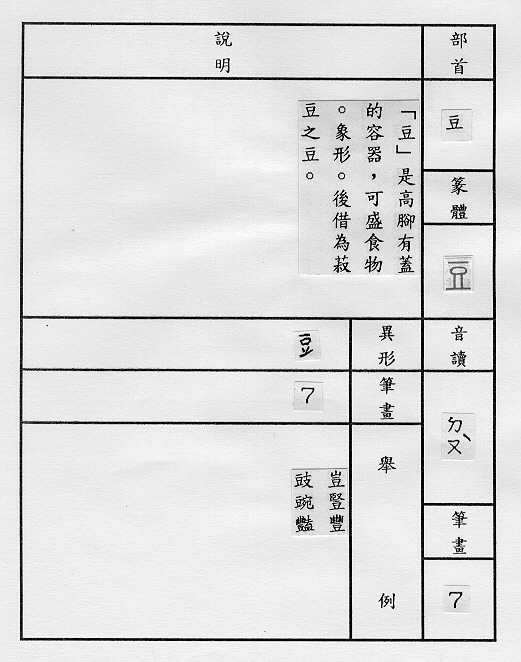 部首
豆
篆體
豆
音讀
ㄉㄡˋ
筆畫
7
說明
「豆」是高腳有蓋
的容器，可盛食物
。象形。後借為菽
豆之豆。
異形
豆
筆畫
7
舉例
豈豎豐
豉豌豔